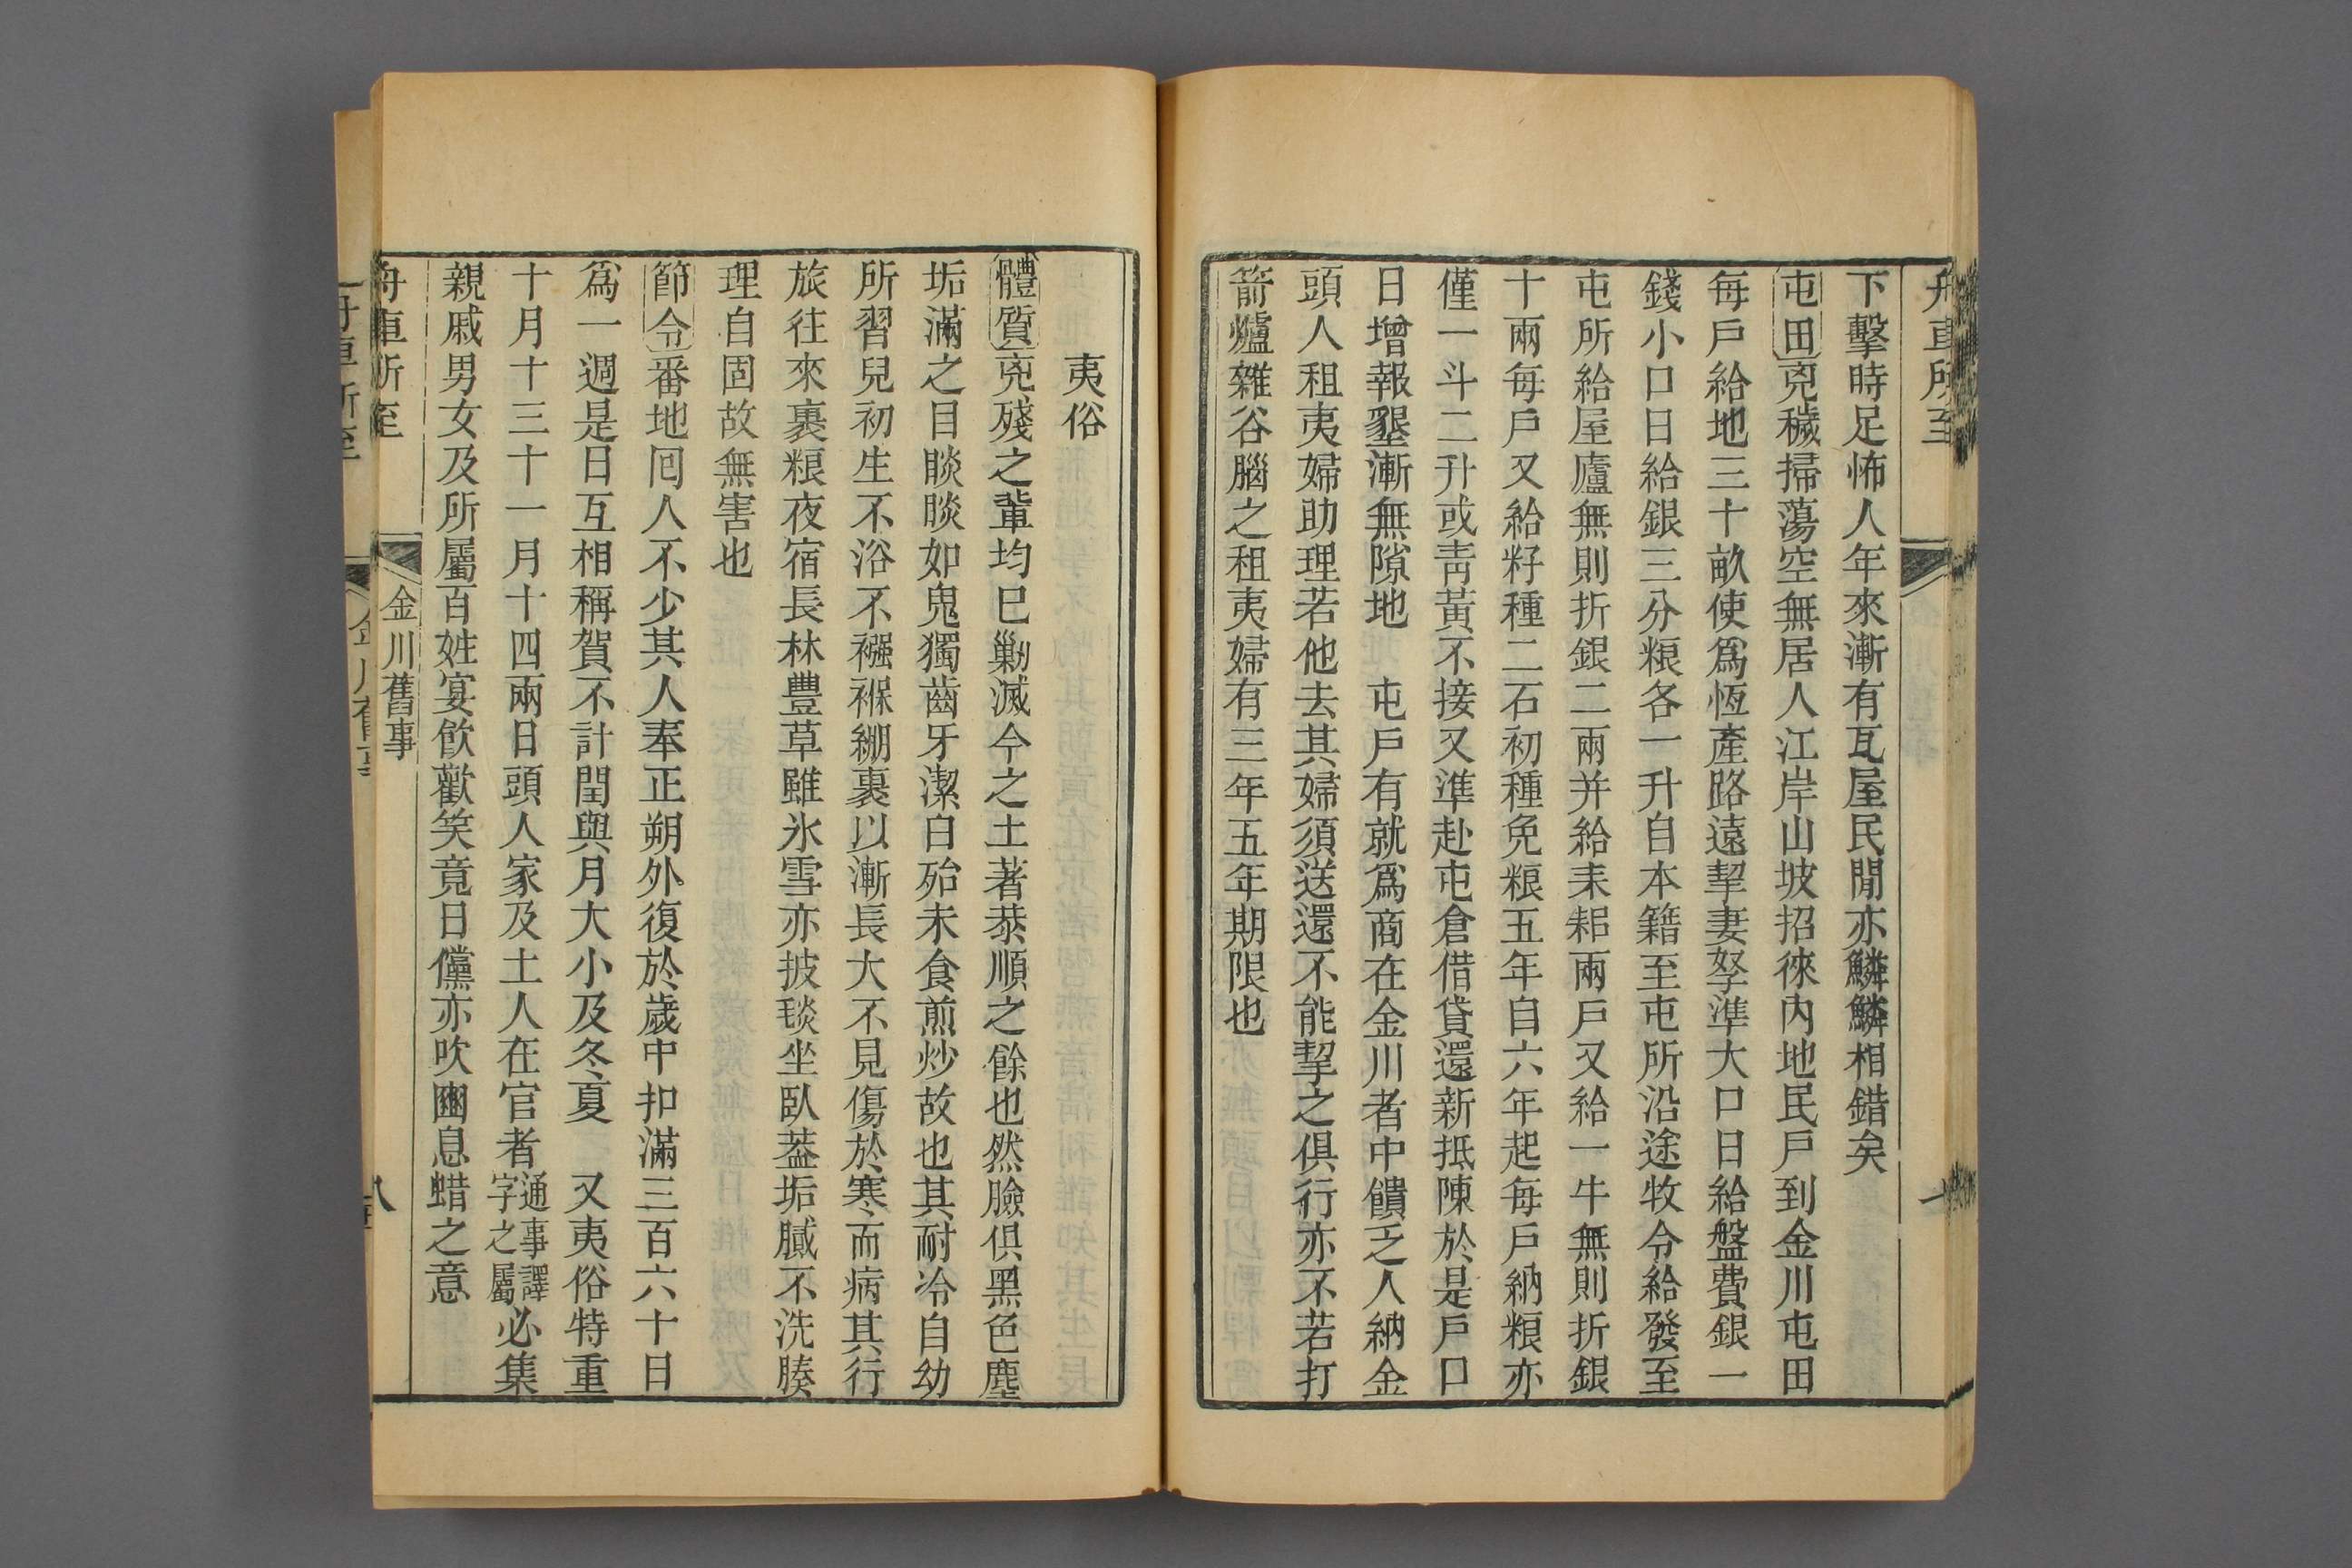 舟車所至
下擊時足怖人年來漸有瓦屋民間亦鱗鱗相錯矣
屯田兇穢掃蕩空無居人江岸山坡招徠內地民戶到金川屯田
每戶給地三十畝使爲恆產路遠挈妻孥準大口日給盤費銀一
錢小口日給銀三分粮各一升自本籍至屯所沿途牧令給發至
屯所給屋廬無則折銀二兩并給耒耜兩戶又給一牛無則折銀
十兩每戶又給籽種二石初種免粮五年自六年起每戶納粮亦
僅一斗二升或靑黃不接又準赴屯倉借貸還新抵陳於是戶口
日增報墾漸無隙地　屯戶有就爲商在金川者中饋乏人納金
頭人租夷婦助理若他去其婦須送還不能挈之俱行亦不若打
箭爐雜谷腦之租夷婦有三年五年期限也
夷俗
體質兇殘之輩均已勦滅今之土著恭順之餘也然臉俱黑色塵
垢滿之目睒睒如鬼獨齒牙潔白殆未食煎炒故也其耐冷自幼
所習兒初生不浴不襁褓綳裹以漸長大不見傷於寒而病其行
旅往來裹粮夜宿長林豐草雖氷雪亦披毯坐臥葢垢膩不洗腠
理自固故無害也
節令番地囘人不少其人奉正朔外復於歲中扣滿三百六十日
爲一週是日互相稱賀不計閏與月大小及冬夏　又夷俗特重
十月十三十一月十四兩日頭人家及土人在官者通事譯字之屬必集
親戚男女及所屬百姓宴飮歡笑竟日儻亦吹豳息蜡之意
舟車所至
金川舊事
八